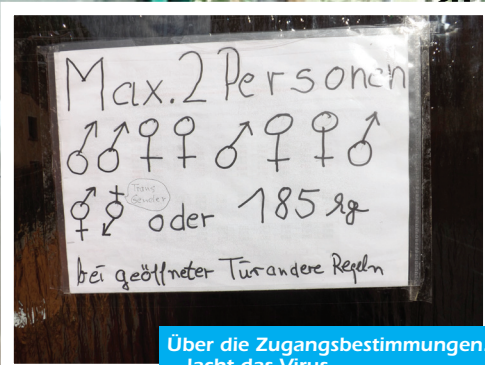 Max. 2 Personen
♂♂♀♀ ♂♀ ♀♂
⚥ Trans Gender oder 185 kg
bei geöffneter Tür andere Regeln
Über die Zugangsbestimmungen
lacht das Virus